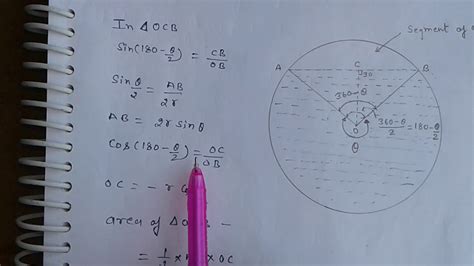 In △ OCB
Sin(180-θ/2) = CB/OB
Sin θ/2 = AB/2r
AB = 2r sin θ
Cos(180-θ/2) = OC/OB
OC = - r
area of △ O
= 1/2 × × OC
Segment of
A
C
B
90
360-θ
r
O
θ
(360-θ)/2 = 180-θ/2